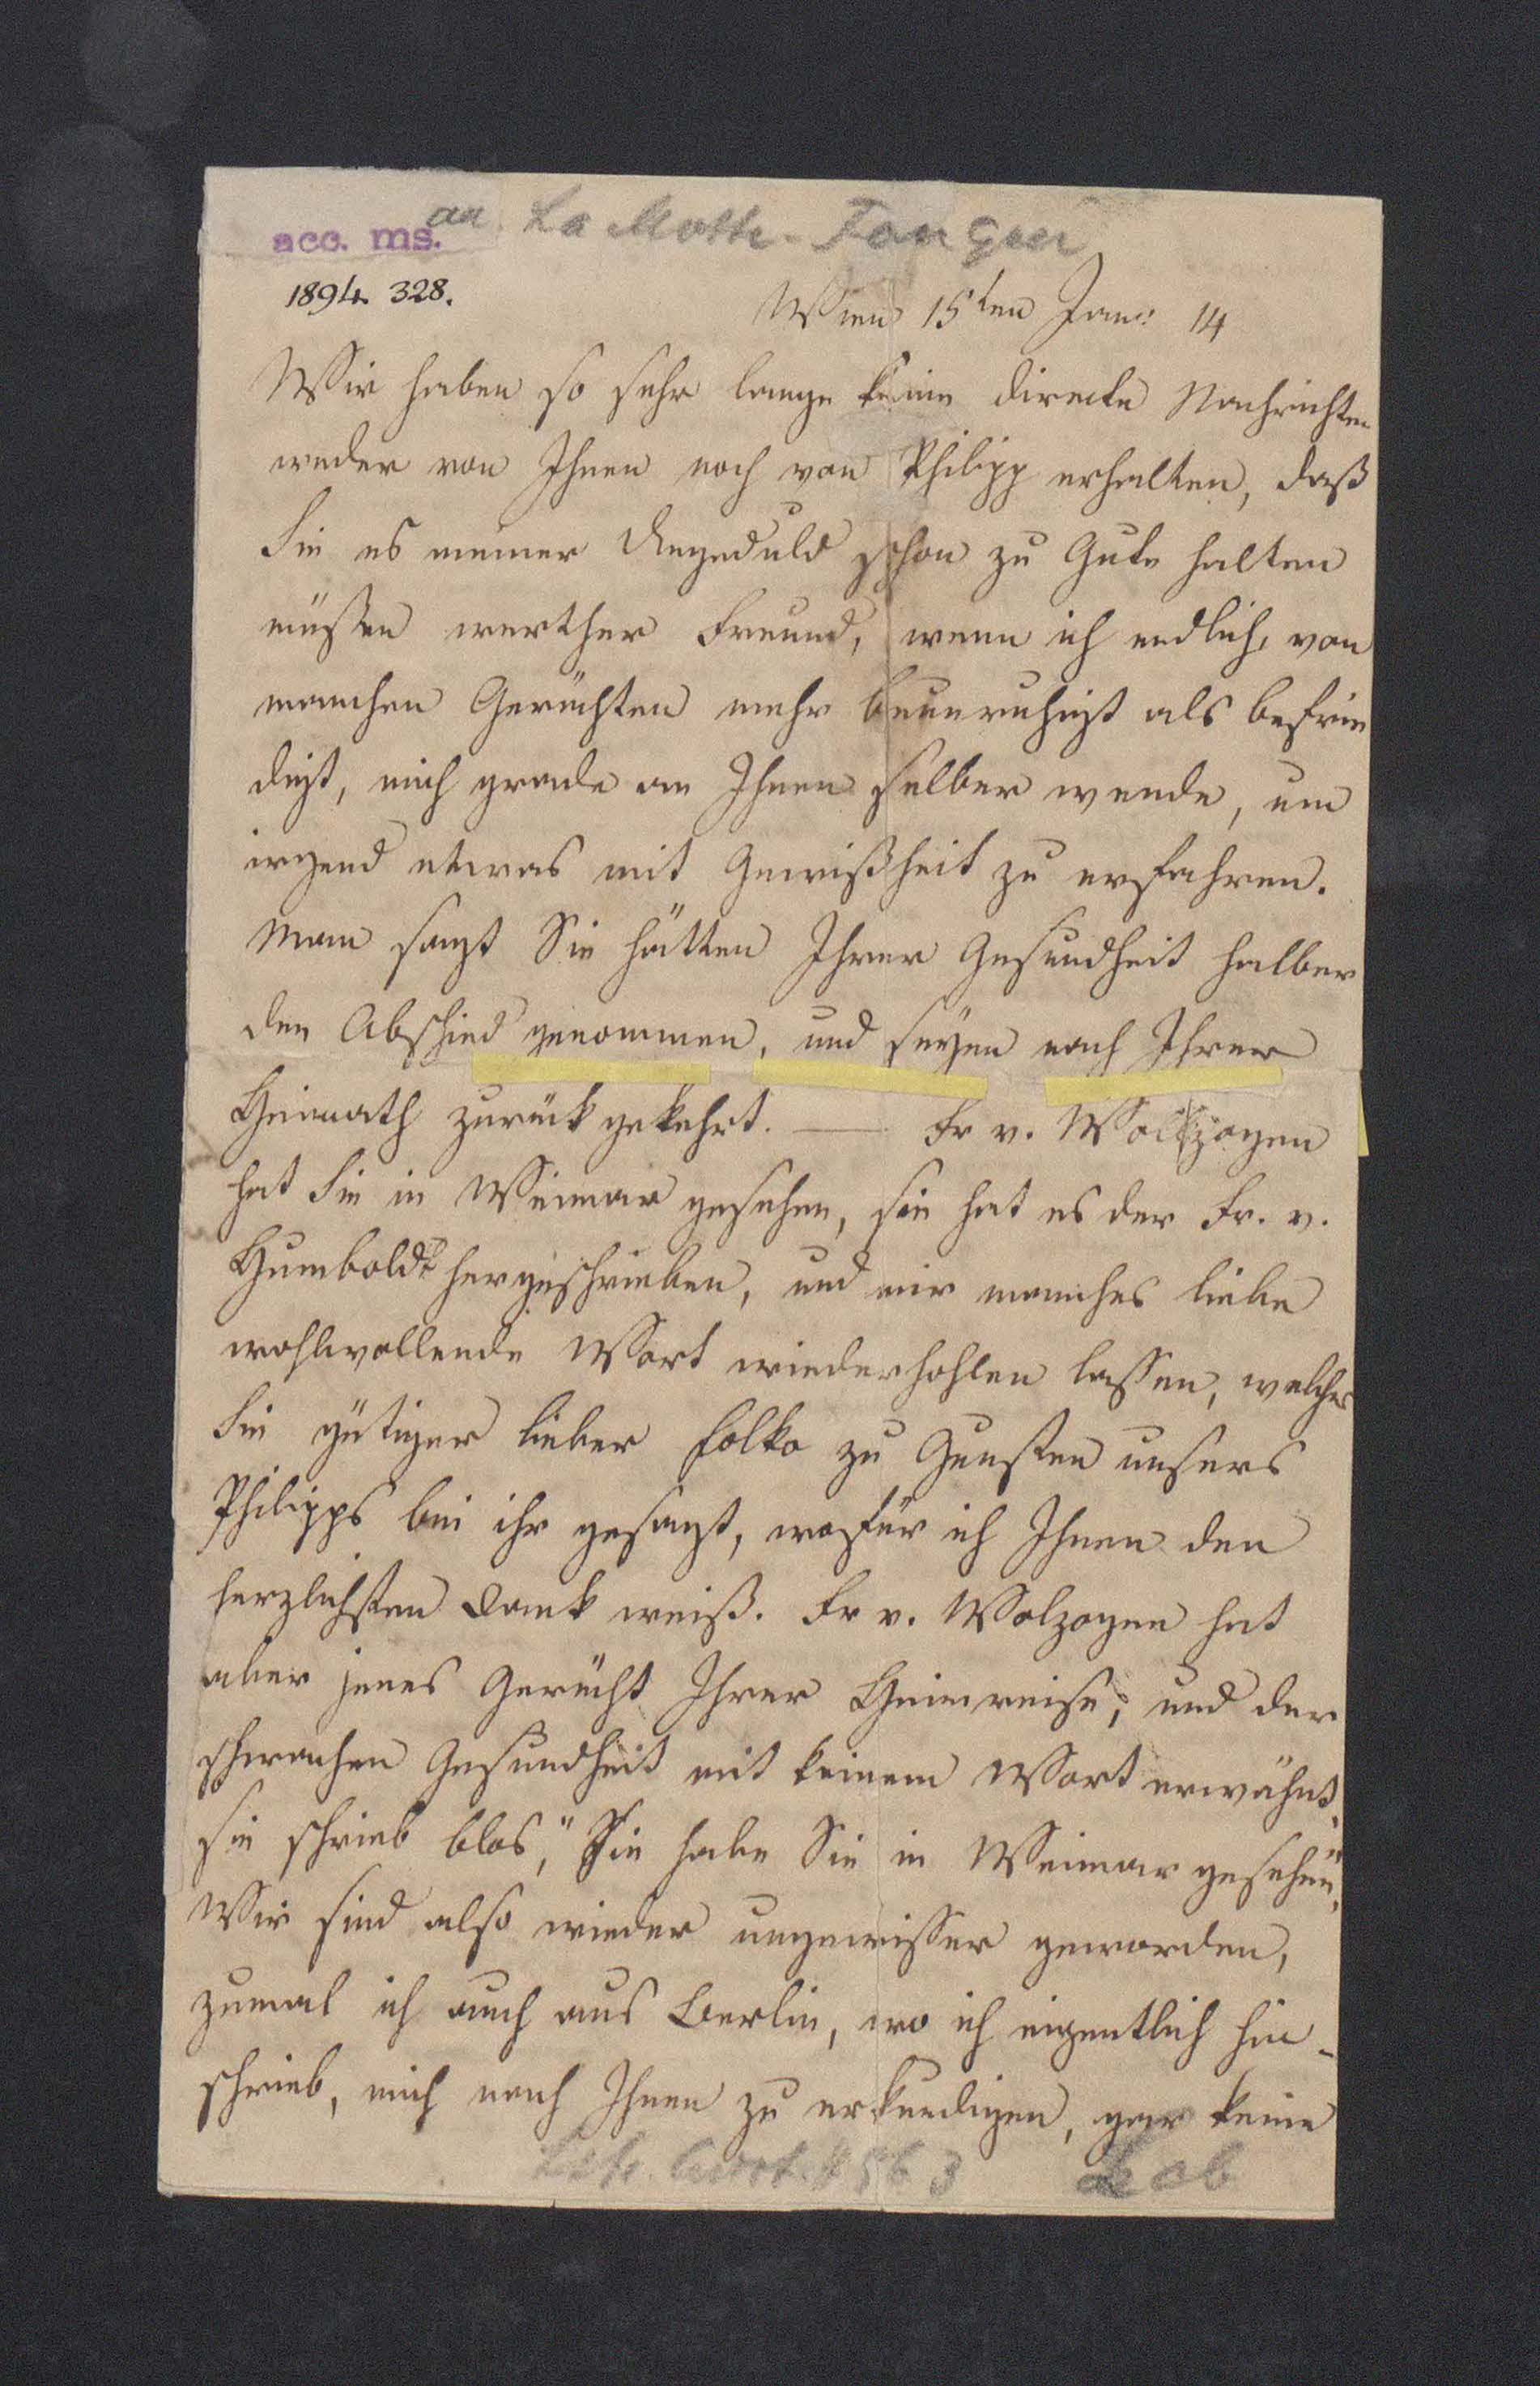 an La Motte-Fouqué
acc. ms.
1894. 328.
Wien 15ten Jan: 14
Wir haben so sehr lange keine directe Nachrichten
weder von Ihnen noch von Philipp erhalten, daß
Sie es meiner Ungeduld schon zu Gute halten
müssen werther Freund, wenn ich endlich, von
manchen Gerüchten mehr beunruhigt als befrie
digt, mich grade an Ihnen selber wende, um
irgend etwas mit Gewißheit zu erfahren.
Man sagt Sie hätten Ihrer Gesundheit halber
den Abschied genommen, und seyen nach Ihrer
Heimath zurück gekehrt. — Fr v. Wolzogen
hat Sie in Weimar gesehen, sie hat es der Fr. v.
Humboldt hergeschrieben, und mir manches liebe
wohlwollende Wort wiederhohlen lassen, welches
Sie gütiger lieber Folko zu Gunsten unsers
Philipps bei ihr gesagt, wofür ich Ihnen den
herzlichsten Dank weiß. Fr v. Wolzogen hat
aber jenes Gerücht Ihrer Heimreise, und der
schwachen Gesundheit mit keinem Wort erwähnt,
sie schrieb blos, "Sie habe Sie in Weimar gesehen".
Wir sind also wieder ungewisser geworden,
zumal ich auch aus Berlin, wo ich eigentlich hin-
schrieb, mich nach Ihnen zu erkundigen, gar keine